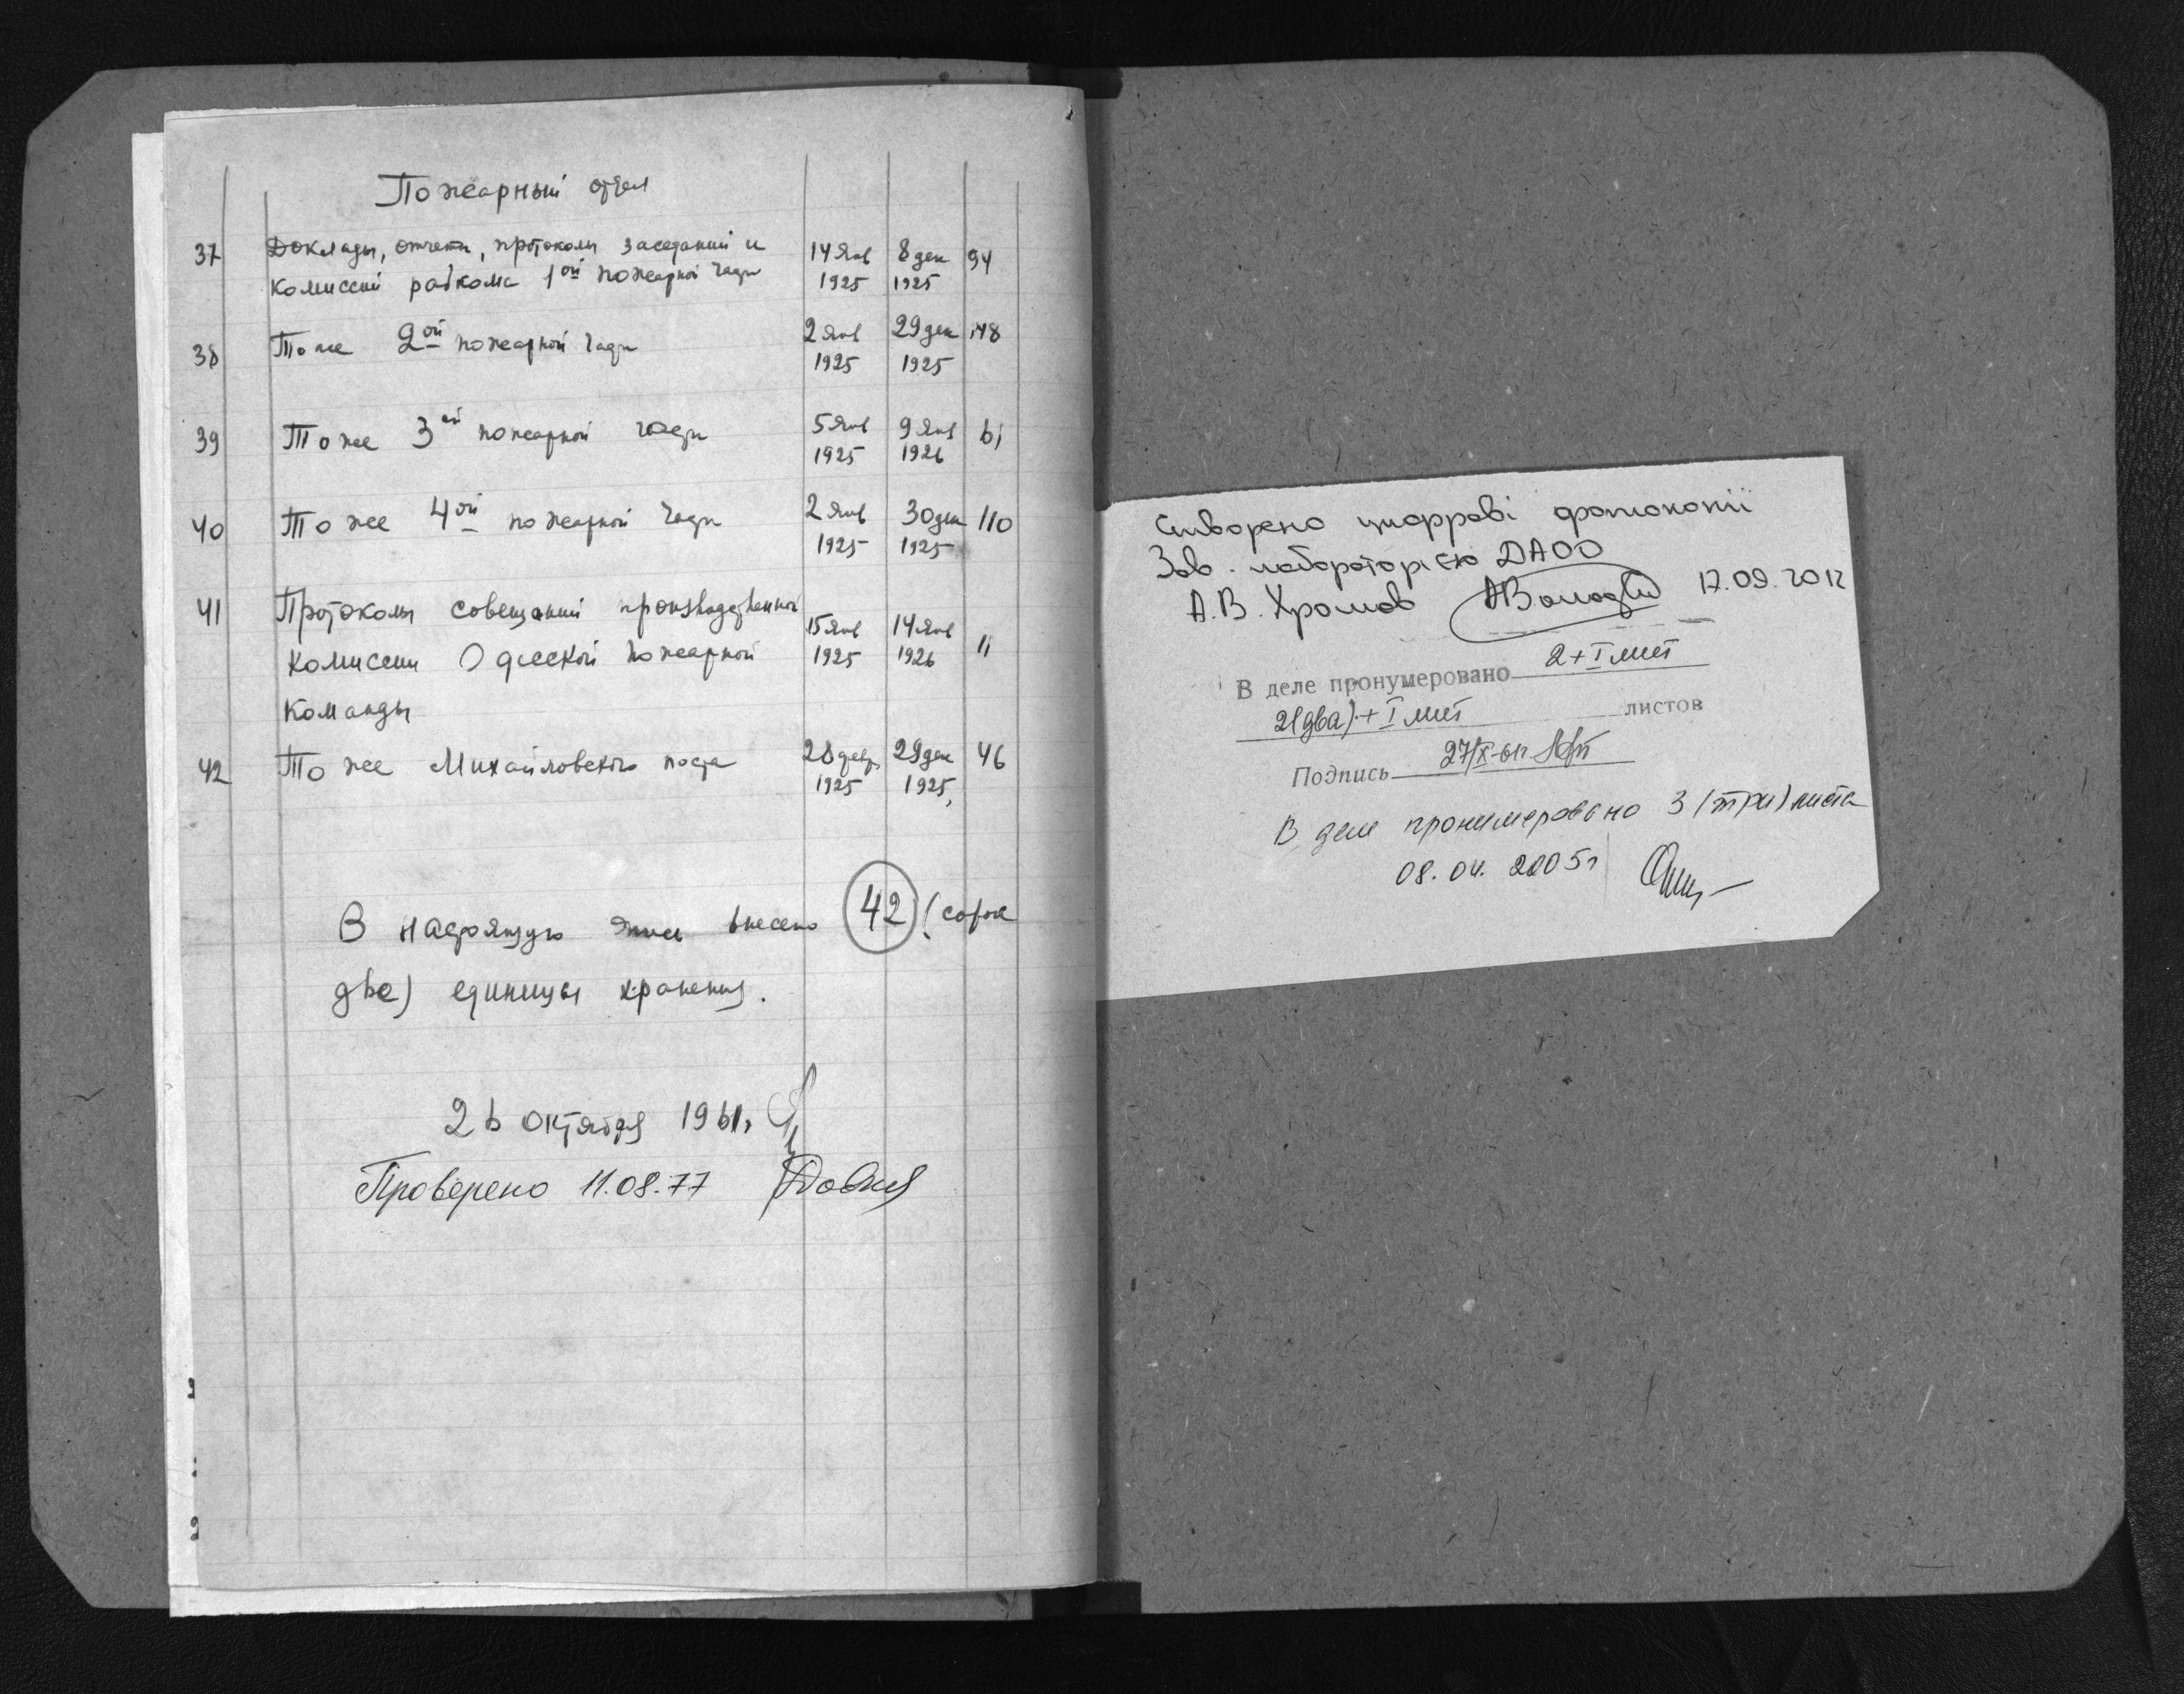 Пожарный отдел
37 Доклады, отчеты, протоколы заседаний и 14 янв 8 дек 94
комиссий рабкома 1ой пожарной части 1925 1925
38 То же 2ой пожарной части 2 янв 29 дек 148
1925 1925
39 То же 3ей пожарной части 5 янв 9 янв 61
1925 1926
40 То же 4ой пожарной части 2 янв 30 дек 110
1925 1925
41 Протоколы совещаний производственной 15 янв 14 янв
комиссии Одесской пожарной 1925 1926 11
команды
42 То же Михайловского поста 28 февр. 29 дек 46
1925 1925
В настоящую опись внесено 42 (сорок
две) единицы хранения.
26 октября 1961г.
Проверено 11.08.77
Створено цифрові фотокопії
Зав. лабораторією ДАОО
А.В. Хромов 17.09.2012
В деле пронумеровано 2+I лист
2(два)+I лист листов
Подпись 27/X-61г.
В деле пронумеровано 3 (три) листа
08.04.2005г